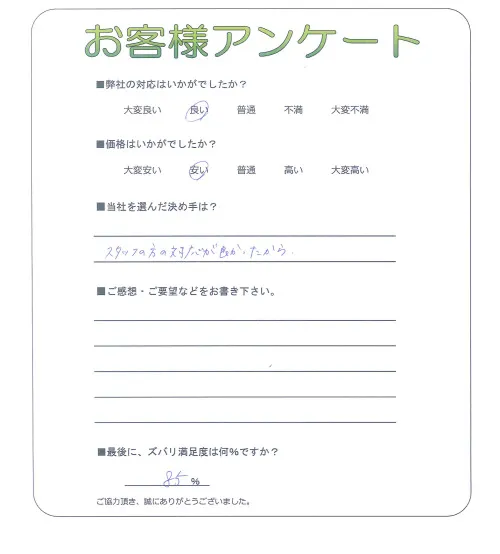 お客様アンケート
■弊社の対応はいかがでしたか？
大変良い 良い 普通 不満 大変不満
■価格はいかがでしたか？
大変安い 安い 普通 高い 大変高い
■当社を選んだ決め手は？
スタッフの方の対応が良かったから.
■ご感想・ご要望などをお書き下さい。
■最後に、ズバリ満足度は何%ですか？
85 %
ご協力頂き、誠にありがとうございました。